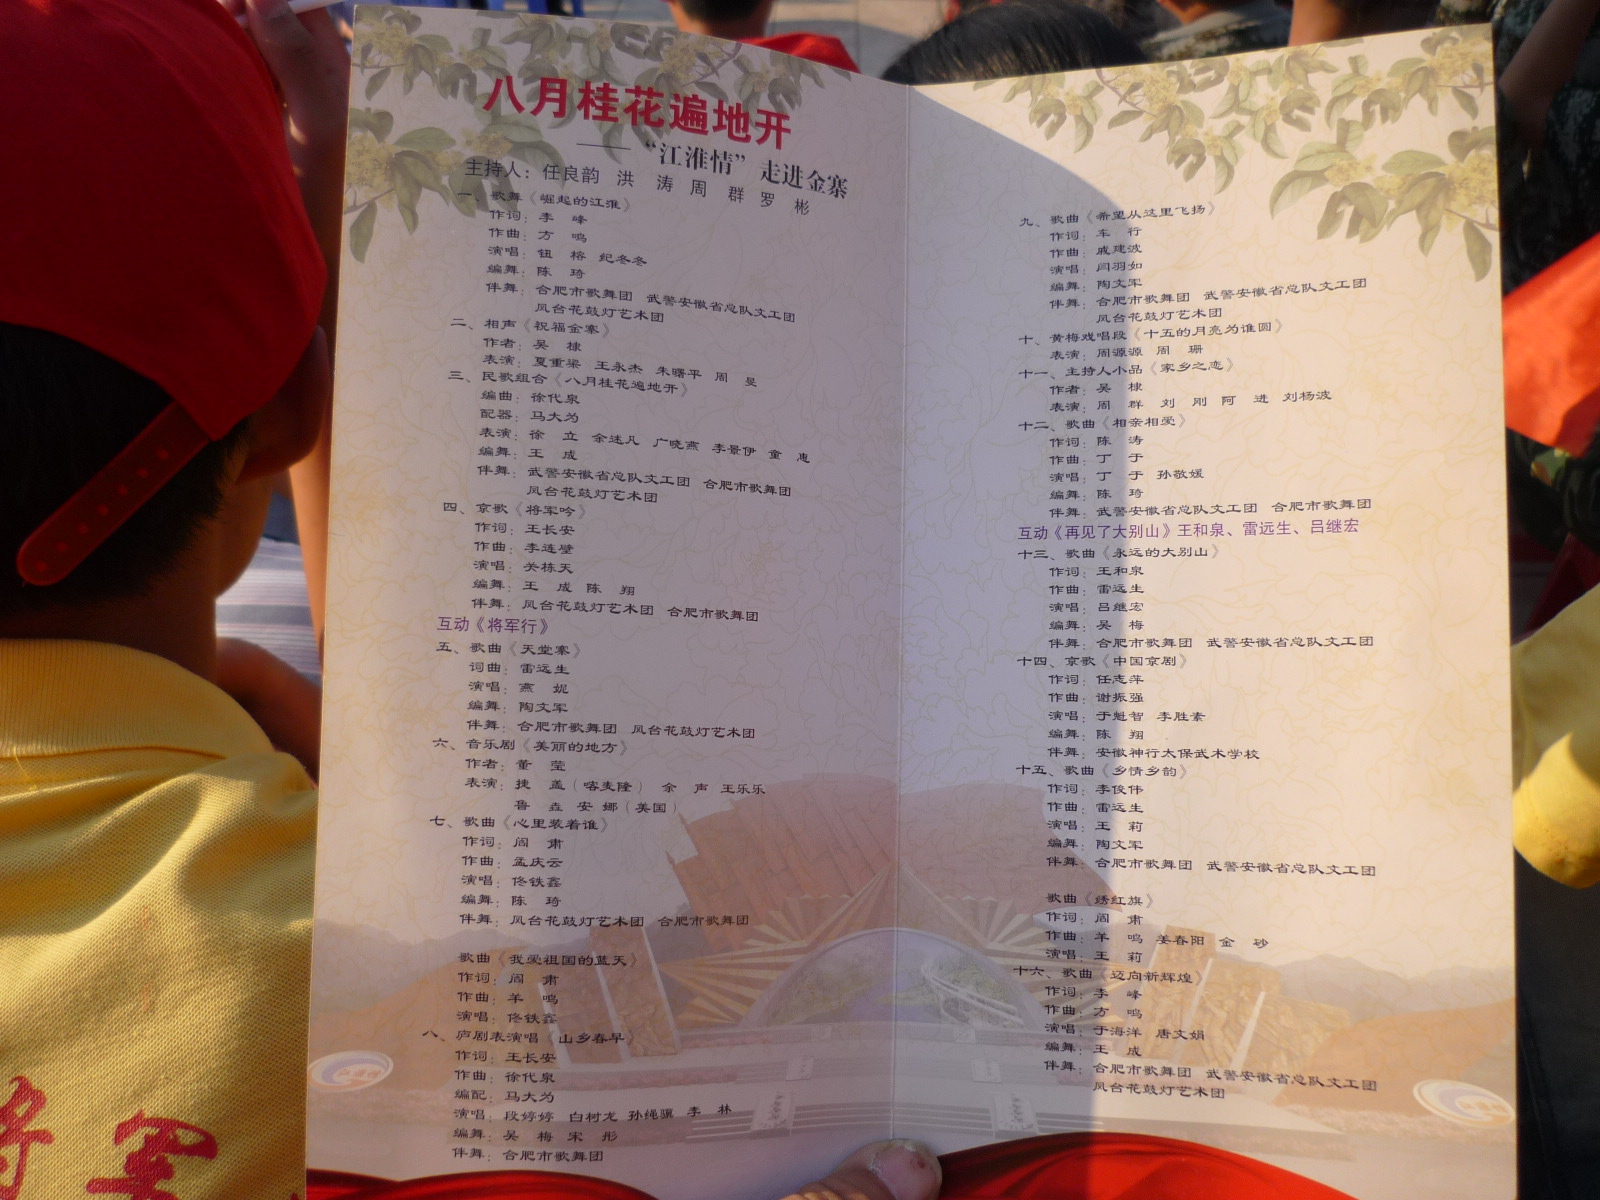 八月桂花遍地开
——“江淮情”走进金寨
主持人：任良韵 洪 涛 周 群 罗 彬
一、歌舞《崛起的江淮》
作词：李 峰
作曲：方 鸣
演唱：钮 榕 纪冬冬
编舞：陈 琦
伴舞：合肥市歌舞团 武警安徽省总队文工团
凤台花鼓灯艺术团
二、相声《祝福金寨》
作者：吴 棣
表演：夏重梁 王永杰 朱曙平 周 旻
三、民歌组合《八月桂花遍地开》
编曲：徐代泉
配器：马大为
表演：徐 立 余述凡 广晓燕 李景伊 童 惠
编舞：王 成
伴舞：武警安徽省总队文工团 合肥市歌舞团
凤台花鼓灯艺术团
四、京歌《将军吟》
作词：王长安
作曲：李连璧
演唱：关栋天
编舞：王 成 陈 翔
伴舞：凤台花鼓灯艺术团 合肥市歌舞团
互动《将军行》
五、歌曲《天堂寨》
词曲：雷远生
演唱：燕 妮
编舞：陶文军
伴舞：合肥市歌舞团 凤台花鼓灯艺术团
六、音乐剧《美丽的地方》
作者：董 莹
表演：捷 盖（喀麦隆） 余 声 王乐乐
鲁 垚 安 娜（美国）
七、歌曲《心里装着谁》
作词：阎 肃
作曲：孟庆云
演唱：佟铁鑫
编舞：陈 琦
伴舞：凤台花鼓灯艺术团 合肥市歌舞团
歌曲《我爱祖国的蓝天》
作词：阎 肃
作曲：羊 鸣
演唱：佟铁鑫
八、庐剧表演唱《山乡春早》
作词：王长安
作曲：徐代泉
编配：马大为
演唱：段婷婷 白树龙 孙绳骥 李 林
编舞：吴 梅 宋 彤
伴舞：合肥市歌舞团
九、歌曲《希望从这里飞扬》
作词：车 行
作曲：戚建波
演唱：闫羽如
编舞：陶文军
伴舞：合肥市歌舞团 武警安徽省总队文工团
凤台花鼓灯艺术团
十、黄梅戏唱段《十五的月亮为谁圆》
表演：周源源 周 珊
十一、主持人小品《家乡之恋》
作者：吴 棣
表演：周 群 刘 刚 阿 进 刘杨波
十二、歌曲《相亲相爱》
作词：陈 涛
作曲：丁 于
演唱：丁 于 孙敬媛
编舞：陈 琦
伴舞：武警安徽省总队文工团 合肥市歌舞团
互动《再见了大别山》王和泉、雷远生、吕继宏
十三、歌曲《永远的大别山》
作词：王和泉
作曲：雷远生
演唱：吕继宏
编舞：吴 梅
伴舞：合肥市歌舞团 武警安徽省总队文工团
十四、京歌《中国京剧》
作词：任志萍
作曲：谢振强
演唱：于魁智 李胜素
编舞：陈 翔
伴舞：安徽神行太保武术学校
十五、歌曲《乡情乡韵》
作词：李俊伟
作曲：雷远生
演唱：王 莉
编舞：陶文军
伴舞：合肥市歌舞团 武警安徽省总队文工团
歌曲《绣红旗》
作词：阎 肃
作曲：羊 鸣 姜春阳 金 砂
演唱：王 莉
十六、歌曲《迈向新辉煌》
作词：李 峰
作曲：方 鸣
演唱：于海洋 唐文娟
编舞：王 成
伴舞：合肥市歌舞团 武警安徽省总队文工团
凤台花鼓灯艺术团
将军